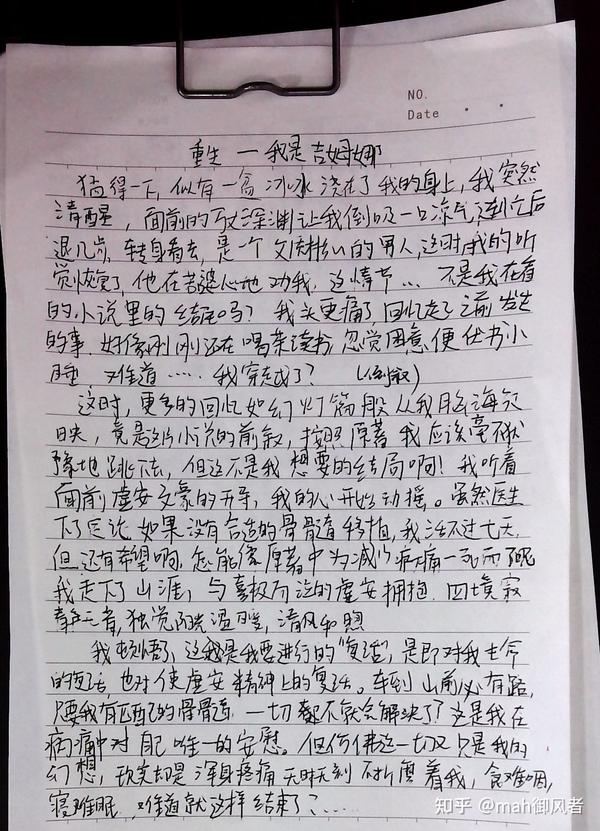 NO.
Date
重生一我是吉姆娜
猛得一下，似有一盆冰水浇在了我的身上，我突然
清醒，面前的万丈深渊让我倒吸一口凉气连忙后
退几步，转身看去，是一个文质彬彬的男人，这时我的听
觉恢复了，他在苦婆心地劝我，这情节… 不是我在看
的小说里的结尾吗？我头更痛了回忆走了之前发生
的事，好像刚刚还在喝茶读书，忽觉困意，便伏书小
睡 难道…… 我穿越了？（倒叙）
这时，更多的回忆如幻灯篇般从我脑海
映，竟是这小说的前叙，按照原著我应该毫不犹
豫地跳下去，但这不是我想要的结局啊！我听着
面前虚安文豪的开导，我的心开始动摇。虽然医生
下了定论，如果没有合适的骨骨髓移植，我活不过七天，
但还有希望啊，怎能像原著中为减少病痛一死而了呢
我走下了山涯，与喜极而泣的虚安拥抱，四境寂
静无音，独觉阳光温暖，清风和煦
我顿悟，这就是我要进行的“复活”，是即对我生命
的复活，也对使虚安精神上的复活。车到山前必有路，
只要我有匹配的骨骨髓，一切都不就会解决了？这是我在
病痛中对自己唯一的安慰。但仿佛这一切又只是我的
幻想，现实却是浑身疼痛无时无刻不折磨着我，食难咽，
寝难眠，难道就这样结束了？……
知乎 @mah御风者